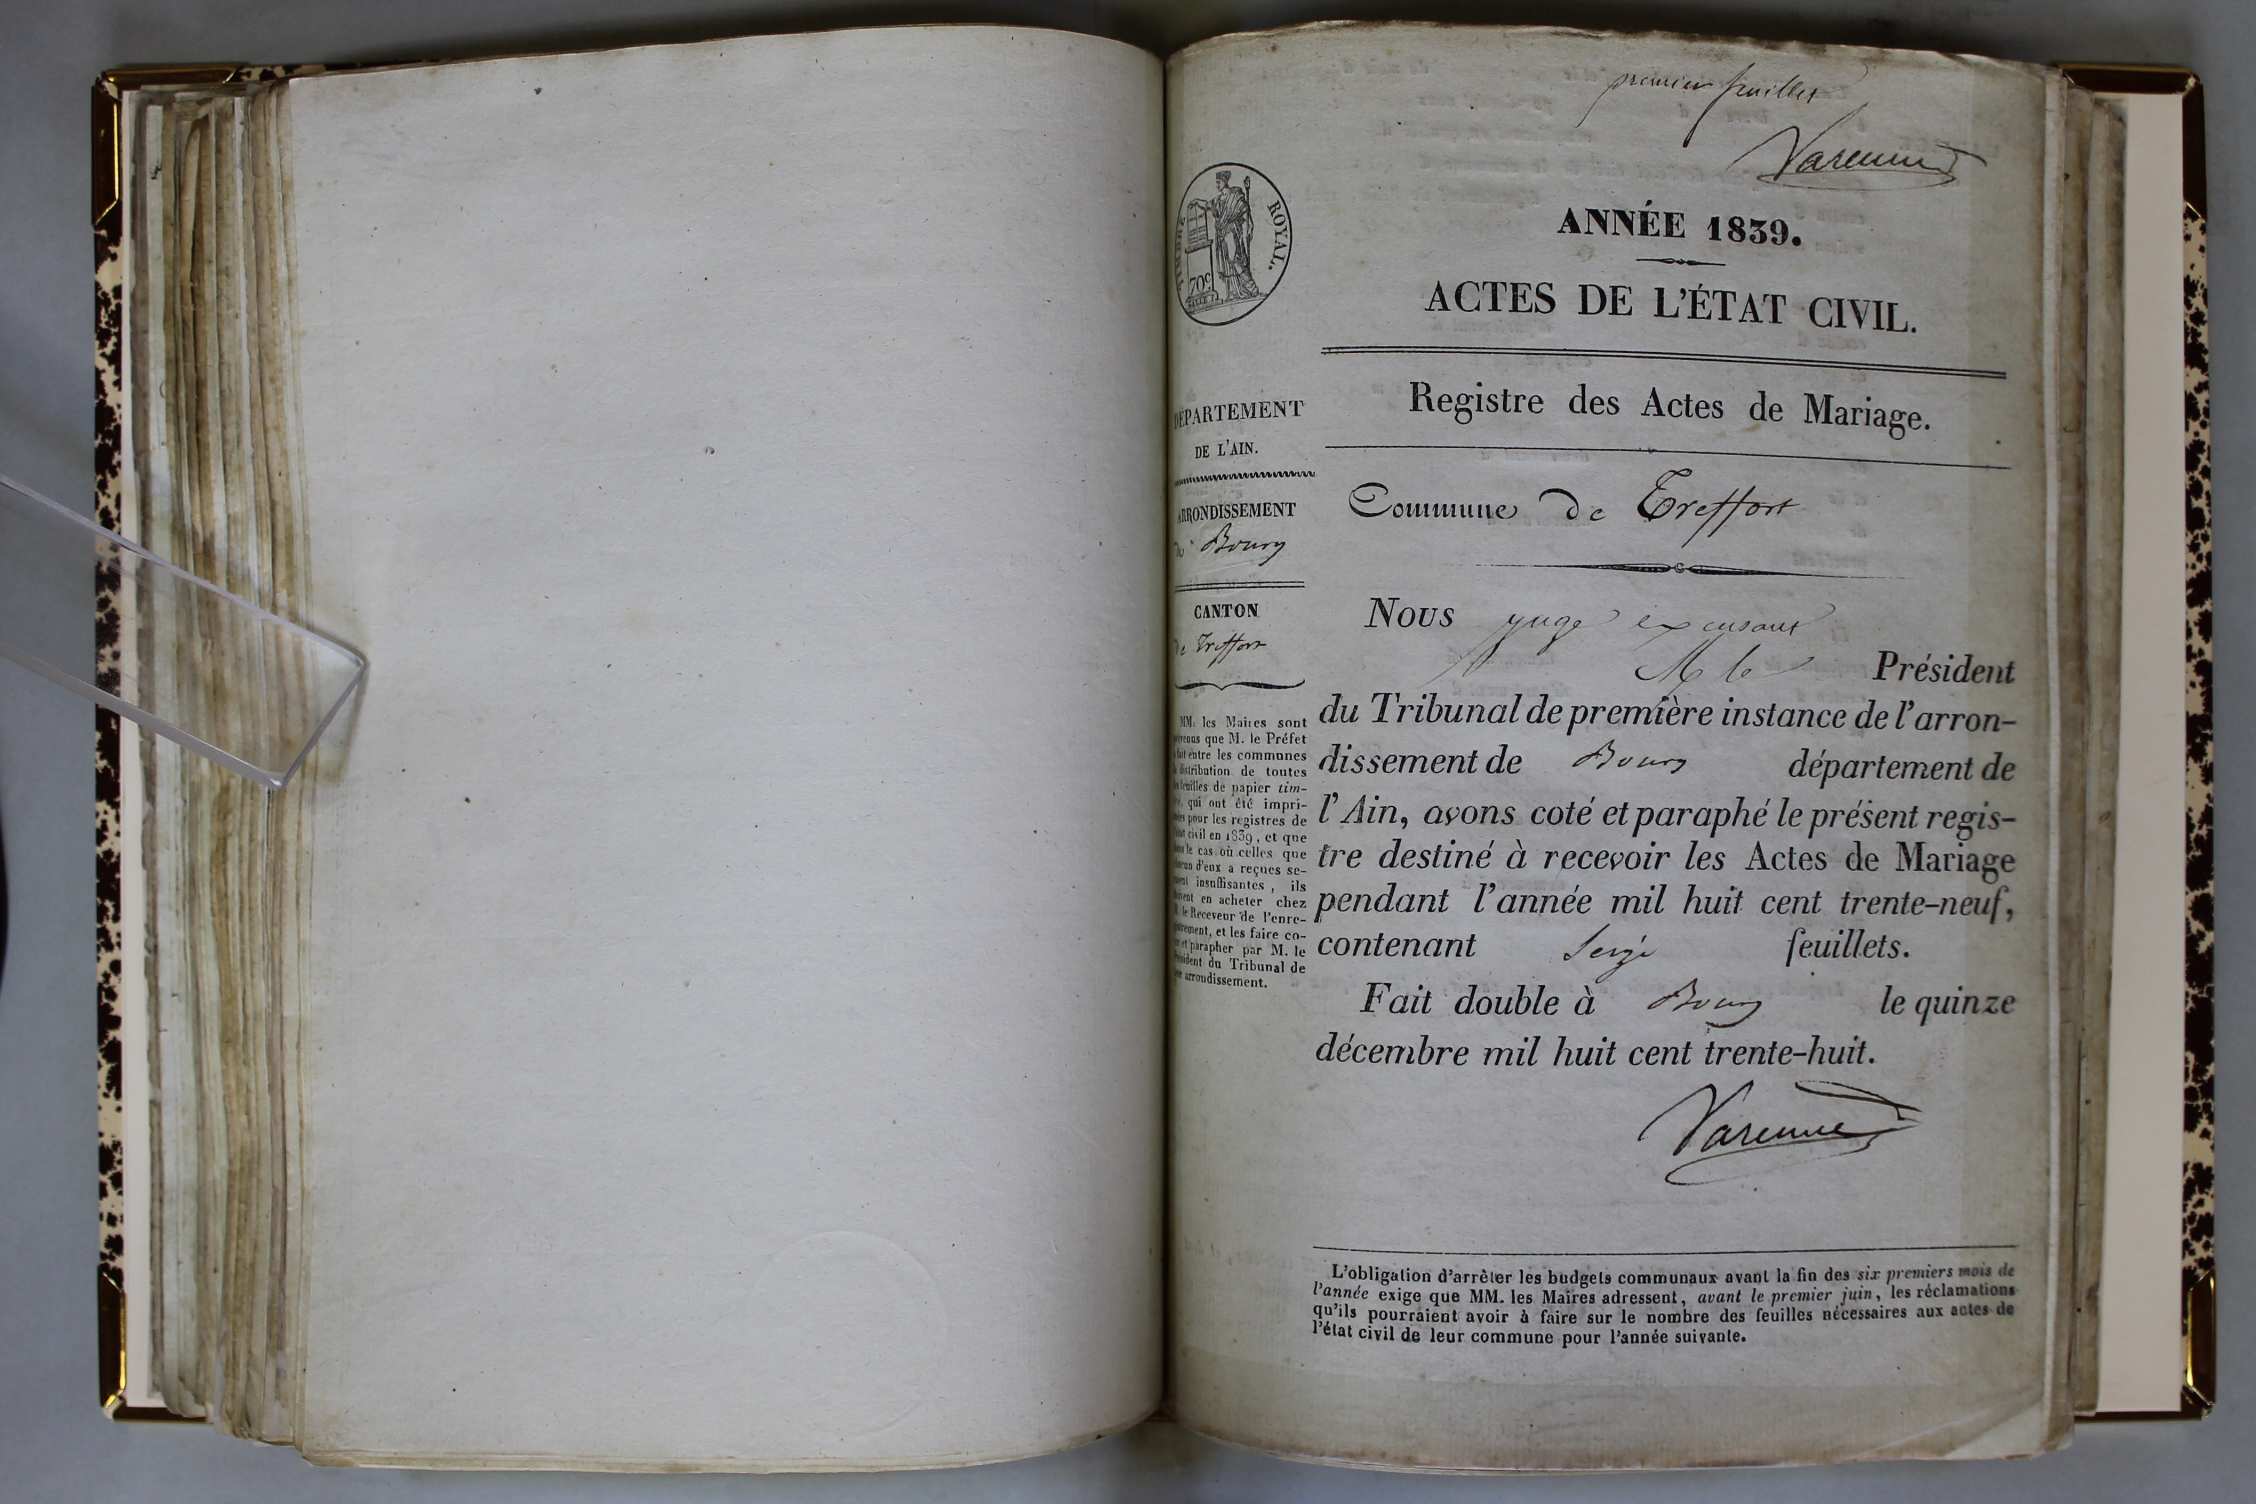 premier feuillet
Varenne
TIMBRE ROYAL.
70c
ANNÉE 1839.
ACTES DE L'ÉTAT CIVIL.
Registre des Actes de Mariage.
DÉPARTEMENT
DE L'AIN.
ARRONDISSEMENT
de Bourg
CANTON
de Treffort
MM. les Maires sont
prévenus que M. le Préfet
a fait entre les communes
la distribution de toutes
les feuilles de papier tim-
bré, qui ont été impri-
mées pour les registres de
l'état civil en 1839, et que
dans le cas où celles que
chacun d'eux a reçues se-
raient insuffisantes, ils
doivent en acheter chez
M. le Receveur de l'enre-
gistrement, et les faire co-
ter et parapher par M. le
Président du Tribunal de
arrondissement.
Commune de Treffort
Nous juge excusant
M le Président
du Tribunal de première instance de l'arron-
dissement de Bourg département de
l'Ain, avons coté et paraphé le présent regis-
tre destiné à recevoir les Actes de Mariage
pendant l'année mil huit cent trente-neuf,
contenant feuillets.
Fait double à Bourg le quinze
décembre mil huit cent trente-huit.
Varenne
L'obligation d'arrêter les budgets communaux avant la fin des six premiers mois de
l'année exige que MM. les Maires adressent, avant le premier juin, les réclamations
qu'ils pourraient avoir à faire sur le nombre des feuilles nécessaires aux actes de
l'état civil de leur commune pour l'année suivante.